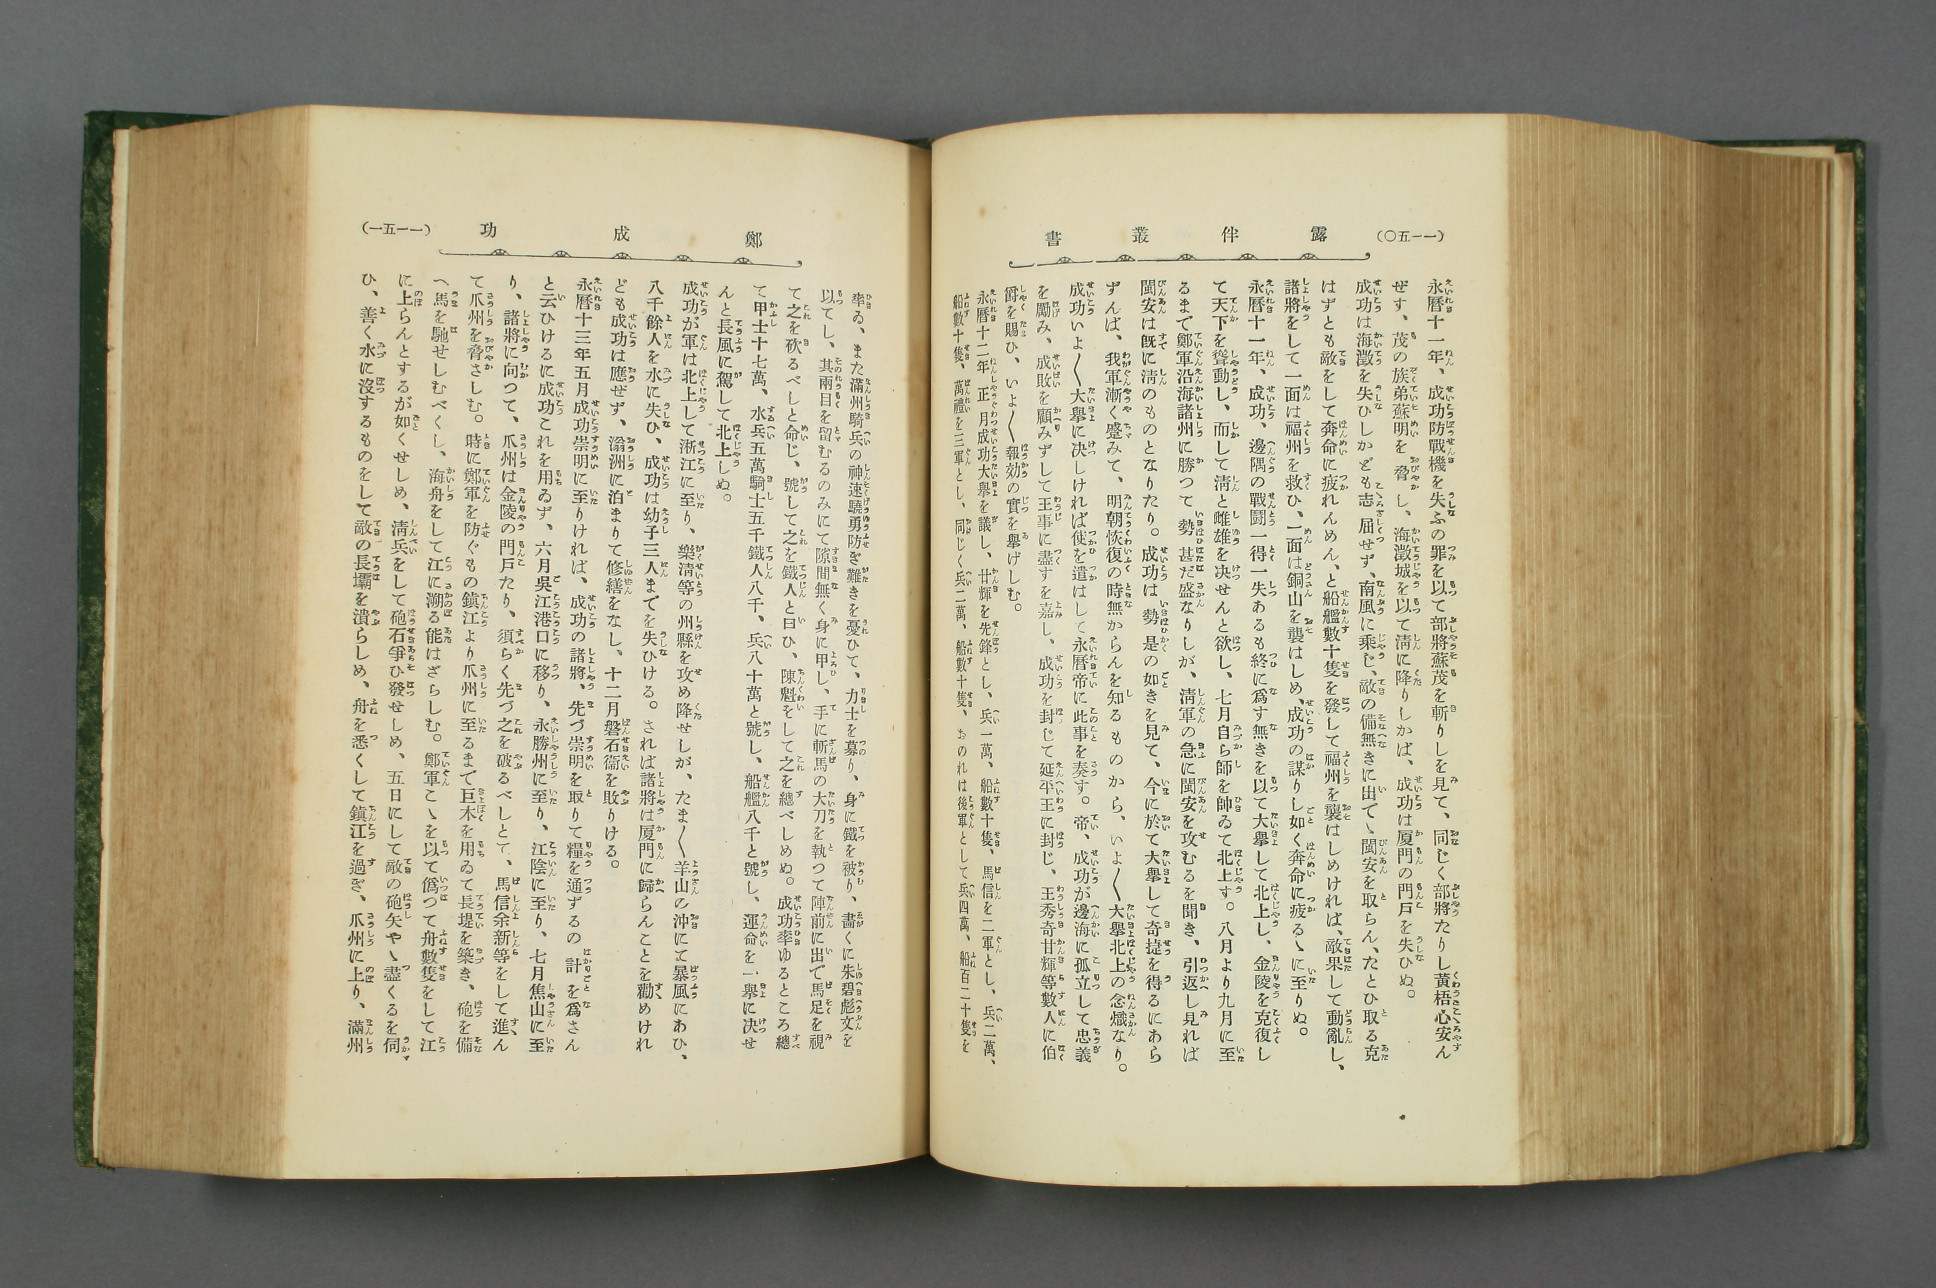 (一一五〇)
露伴叢書
永曆十一年、成功防戰機を失ふの罪を以て部將蘇茂を斬りしを見て、同じく部將たりし黃梧心安ん
ぜす、茂の族弟蘇明を脅し、海澄城を以て淸に降りしかば、成功は厦門の門戶を失ひぬ。
成功は海澄を失ひしかども志屈せず、南風に乘じ、敵の備無きに出でゝ閩安を取らん、たとひ取る克
はずとも敵をして奔命に疲れんめん、と船艦數十隻を發して福州を襲はしめければ、敵果して動亂し、
諸將をして一面は福州を救ひ、一面は銅山を襲はしめ、成功の謀りし如く奔命に疲るゝに至りぬ。
永曆十一年、成功、邊隅の戰鬪一得一失あるも終に爲す無きを以て大擧して北上し、金陵を克復し
て天下を聳動し、而して淸と雌雄を決せんと欲し、七月自ら師を帥ゐて北上す。八月より九月に至
るまで鄭軍沿海諸州に勝つて勢甚だ盛なりしが、淸軍の急に閩安を攻むるを聞き、引返し見れば
閩安は既に淸のものとなりたり。成功は勢是の如きを見て、今に於て大擧して奇捷を得るにあら
ずんば、我軍漸く蹙みて、明朝恢復の時無からんを知るものから、いよ〱大擧北上の念熾なり。
成功いよ〱大擧に決しければ使を遣はして永曆帝に此事を奏す。帝、成功が邊海に孤立して忠義
を勵み、成敗を顧みずして王事に盡すを嘉し、成功を封じて延平王に封じ、王秀奇甘輝等數人に伯
爵を賜ひ、いよ〱報効の實を擧げしむ。
永曆十二年正月成功大擧を議し、甘輝を先鋒とし、兵一萬、船數十隻、馬信を二軍とし、兵二萬、
船數十隻、萬禮を三軍とし、同じく兵二萬、船數十隻、おのれは後軍として兵四萬、船百二十隻を
鄭成功
(一一五一)
率ゐ、また滿州騎兵の神速驍勇防ぎ難きを憂ひて、力士を募り、身に鐵を被り、畵くに朱碧彪文を
以てし、其兩目を留むるのみにて隙間無く身に甲し、手に斬馬の大刀を執つて陣前に出で馬足を視
て之を砍るべしと命じ、號して之を鐵人と曰ひ、陳魁をして之を總べしめぬ。成功率ゆるところ總
て甲士十七萬、水兵五萬騎士五千鐵人八千、兵八十萬と號し、船艦八千と號し、運命を一擧に決せ
んと長風に駕して北上しぬ。
成功が軍は北上して淅江に至り、樂淸等の州縣を攻め降せしが、たま〱羊山の沖にて暴風にあひ、
八千餘人を水に失ひ、成功は幼子三人までを失ひける。されば諸將は厦門に歸らんことを勸めけれ
ども成功は應ぜず、滃洲に泊まりて修繕をなし、十二月磐石衞を敗りける。
永曆十三年五月成功崇明に至りければ、成功の諸將、先づ崇明を取りて糧を通ずるの計を爲さん
と云ひけるに成功これを用ゐず、六月吳江港口に移り、永勝州に至り、江陰に至り、七月焦山に至
り、諸將に向つて、爪州は金陵の門戶たり、須らく先づ之を破るべしとて、馬信余新等をして進ん
て爪州を脅さしむ。時に鄭軍を防ぐもの鎭江より爪州に至るまで巨木を用ゐて長堤を築き、砲を備
へ馬を馳せしむべくし、海舟をして江に溯る能はざらしむ。鄭軍こゝを以て僞つて舟數隻をして江
に上らんとするが如くせしめ、淸兵をして砲石爭ひ發せしめ、五日にして敵の砲矢やゝ盡くるを伺
ひ、善く水に沒するものをして敵の長壩を潰らしめ、舟を悉くして鎭江を過ぎ、爪州に上り、滿州